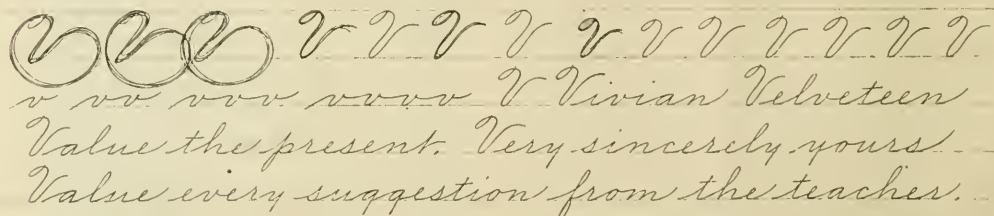 V V V V V V V V V V V V V V
v vv vvv vvvv V Vivian Velveteen
Value the present. Very sincerely yours
Value every suggestion from the teacher.